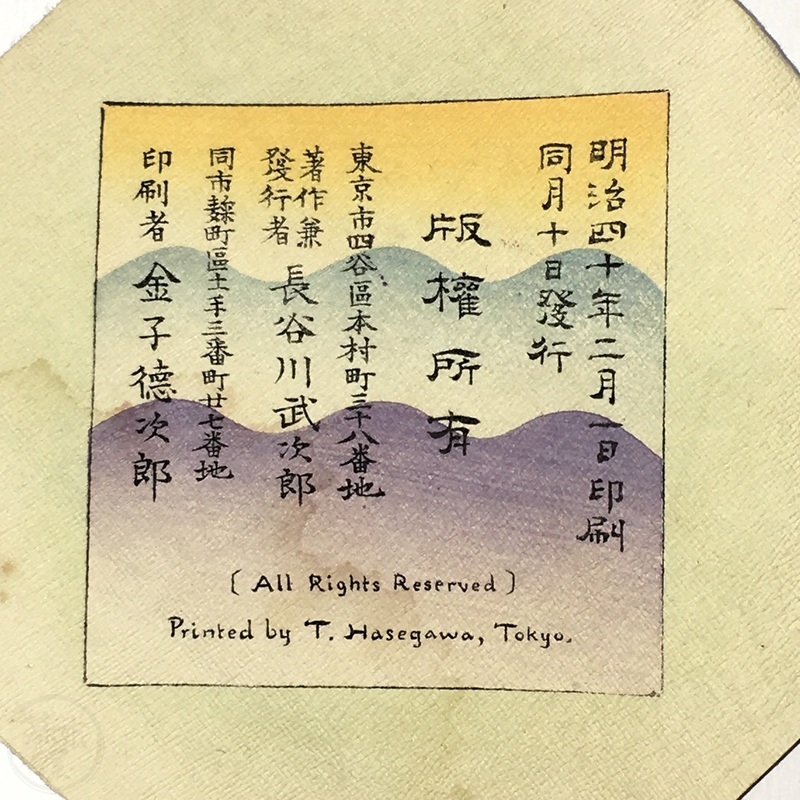 明治四十年二月一日印刷
同月十日發行
版權所有
東京市四谷區本村町三十八番地
著作兼
發行者
長谷川武次郎
同市麹町區土手三番町廿七番地
印刷者 金子德次郎
〔All Rights Reserved〕
Printed by T. Hasegawa, Tokyo.